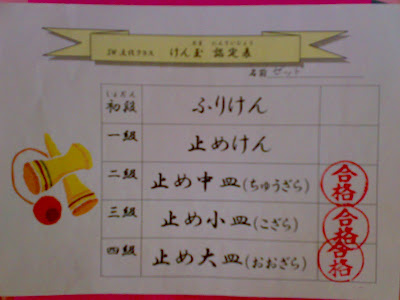 だま にんていひょう
2W 土代クラス けん玉 認定表
名前 ゼット
しょだん
初段 ふりけん
一級 止めけん
二級 止め中皿(ちゅうざら) 合格
三級 止め小皿(こざら) 合格
四級 止め大皿(おおざら) 合格